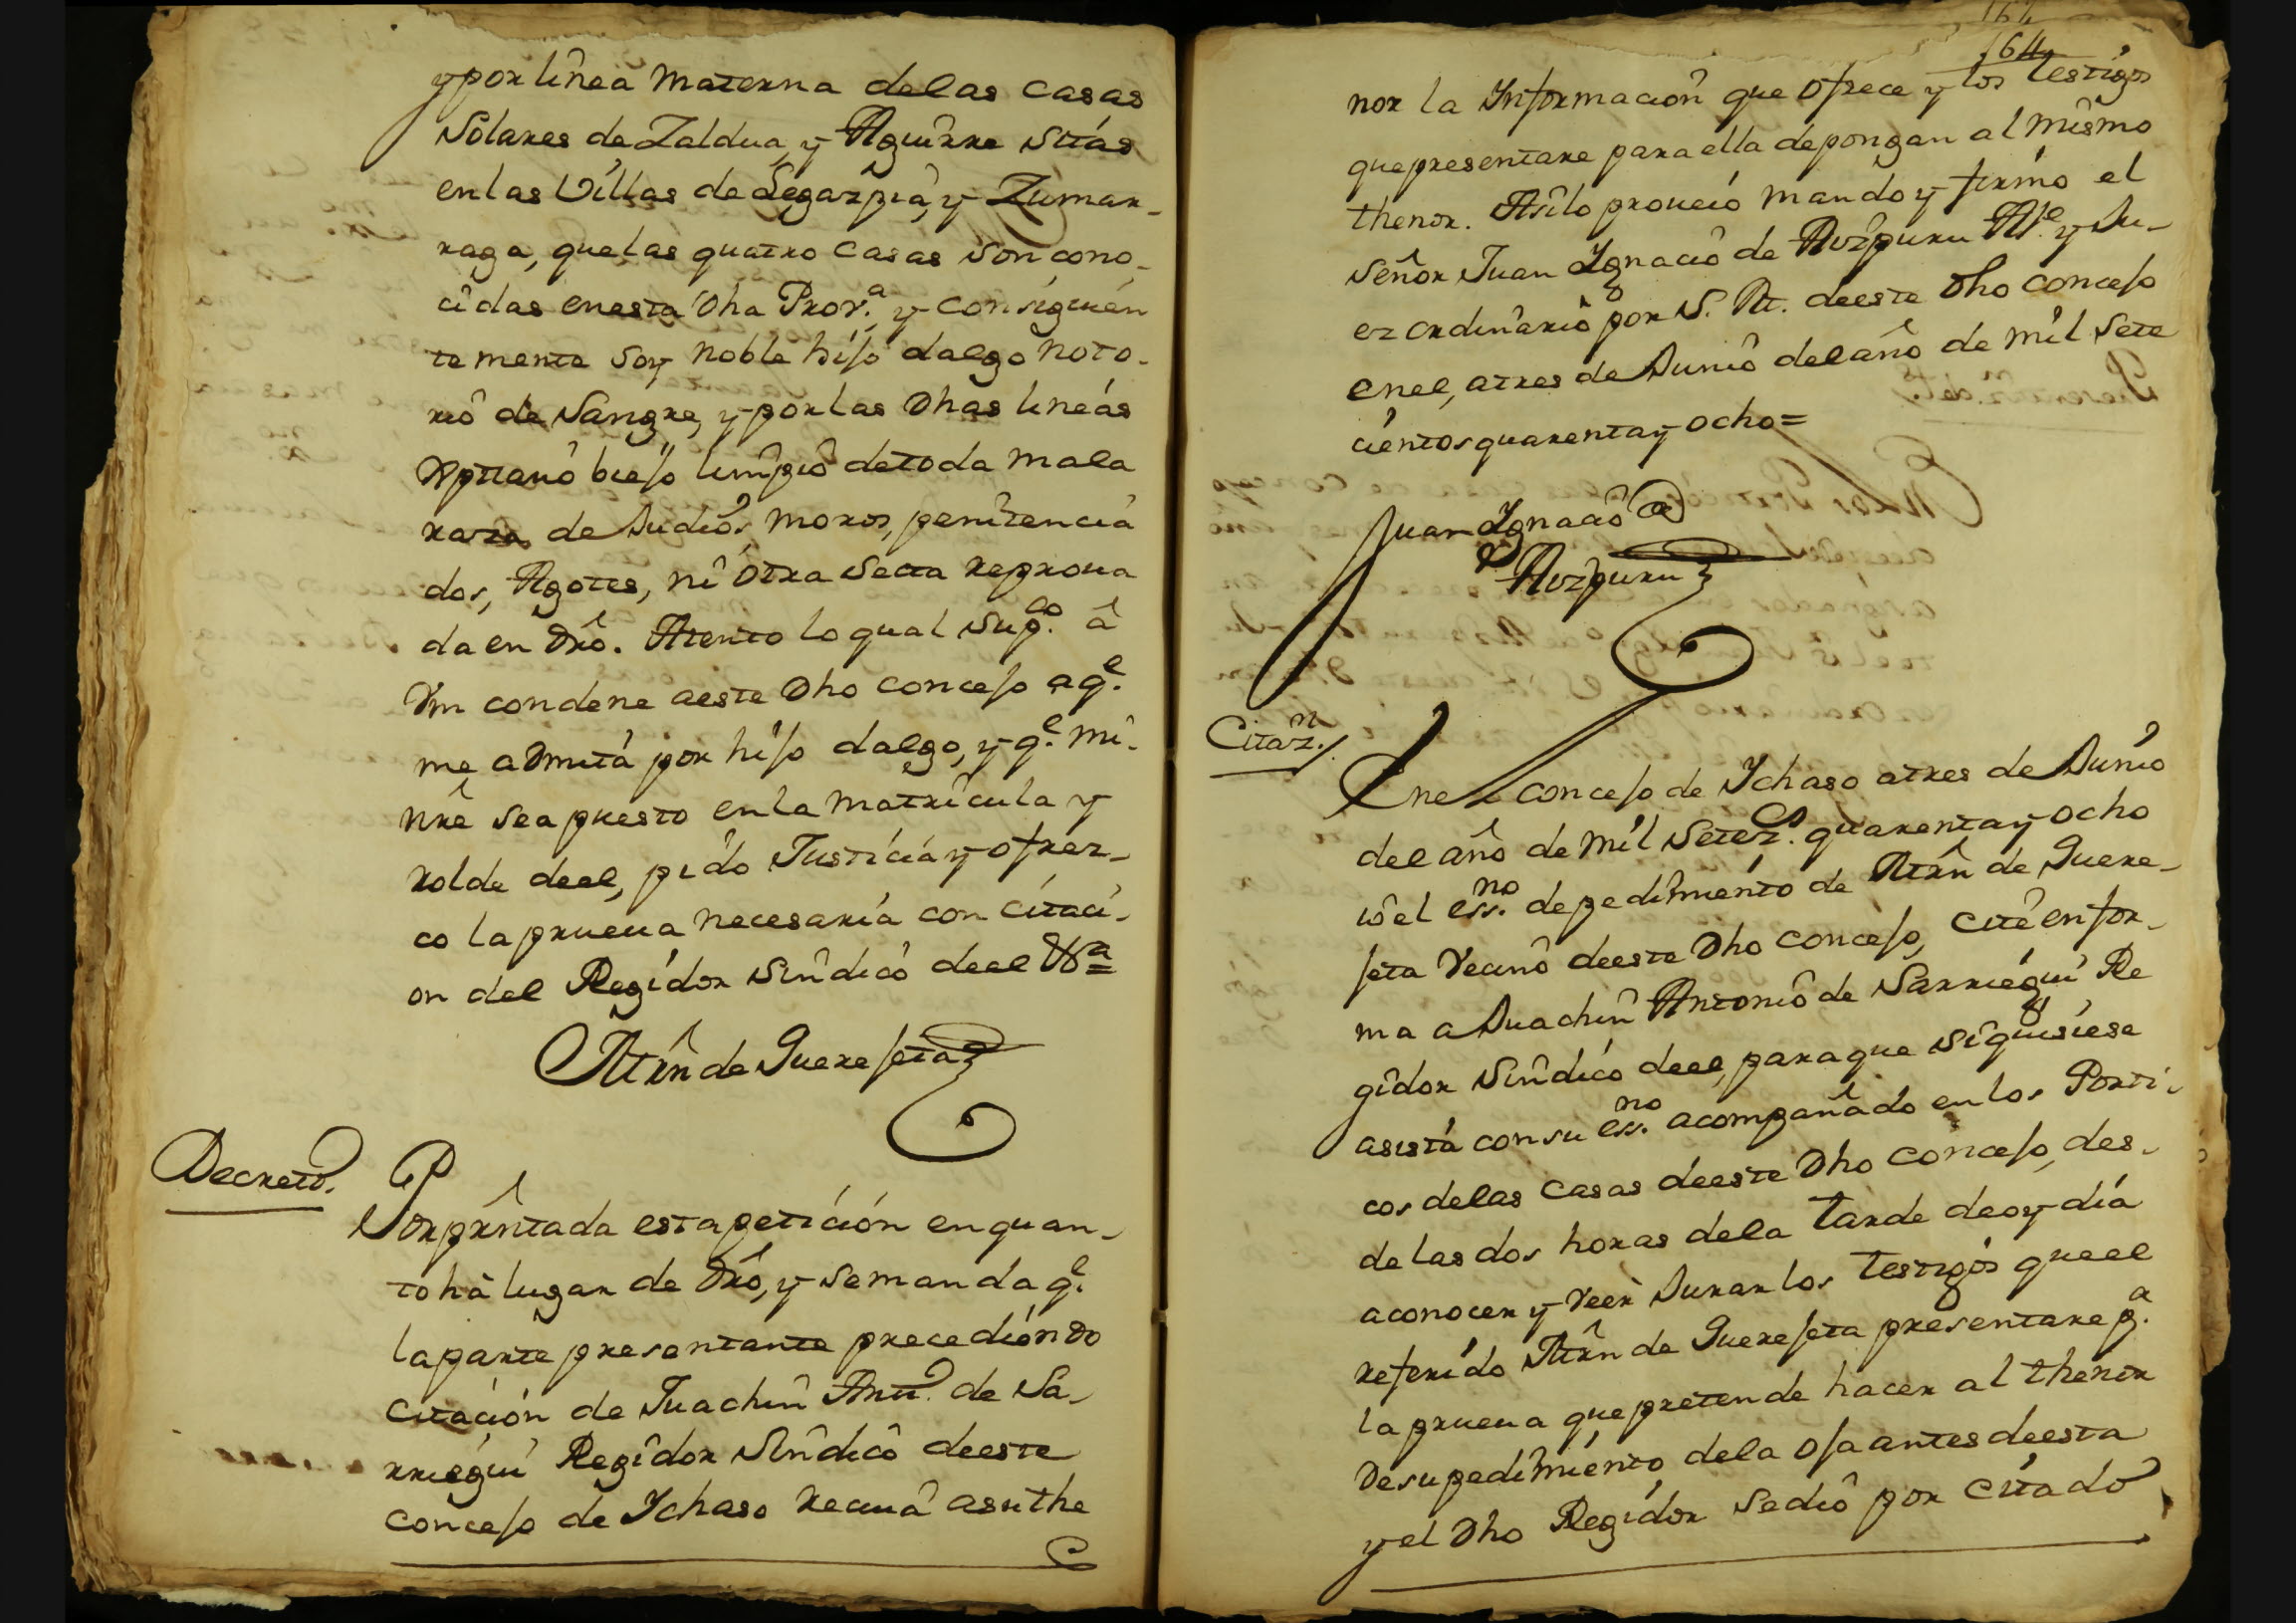 y por linea Materna de las casas
Solares de Zaldua, y Aguirre sitas
en las Villas de Legazpia, y Zumar-
raga, que las quatro casas son cono-
cidas en esta Dha Prov.ª y consiguien
temente soy noble hijo dalgo noto-
rio de Sangre, y por las Dhas lineas
Xptiano biejo limpio de toda mala
raza de Judios, moros, penitencia
dos, Agotes, ni otra Secta reproua
da en Dro. Atento lo qual Sup.co â
Vm condene a este Dho concejo a q.e
me admita por hijo dalgo, y q.e mi
nre sea puesto en la matricula y
rolde de el, pido Justicia y ofrez-
co la prueua necesaria con citaci-
on del Regidor Sindico de el Vª =
Mrñ de Guerejeta
Decreto.
Por prntada esta peticion en quan-
to hâ lugar de Dro, y se manda q.e
la parte presentante precediendo
citacion de Juachin Antt.o de Sa-
rriegui Regidor Sindico de este
concejo de Ychaso reciua a su the
164
164
nor la Informacion que ofrece y los testigos
que presentare para ella depongan al mismo
thenor. Asi lo proueio mando y firmo el
señor Juan Ignacio de Aozpuru Al.e y Ju-
ez ordinario por S. M. de este Dho concejo
en el, a tres de Junio del año de mil sete
cientos quarenta y ocho =
Juan Ignacio de
Aozpuru
Citaz.n
En el concejo de Ychaso a tres de Junio
del año de mil Setez.s quarenta y ocho
io el ess.no de pedimiento de Mrñ de Guere-
jeta Vecino de este Dho concejo, cite en for-
ma a Juachin Antonio de Sarriegui Re
gidor Sindico de el, para que si quisiese
asista con su ess.no acompañado en los Porti-
cos de las casas de este Dho concejo, des-
de las dos horas de la tarde de oy dia
a conocer y veer Jurar los testigos que el
referido Mrñ de Guerejeta presentare p.a
la prueua que pretende hacer al thenor
de su pedimiento de la oja antes de esta
y el Dho Regidor se dio por citado